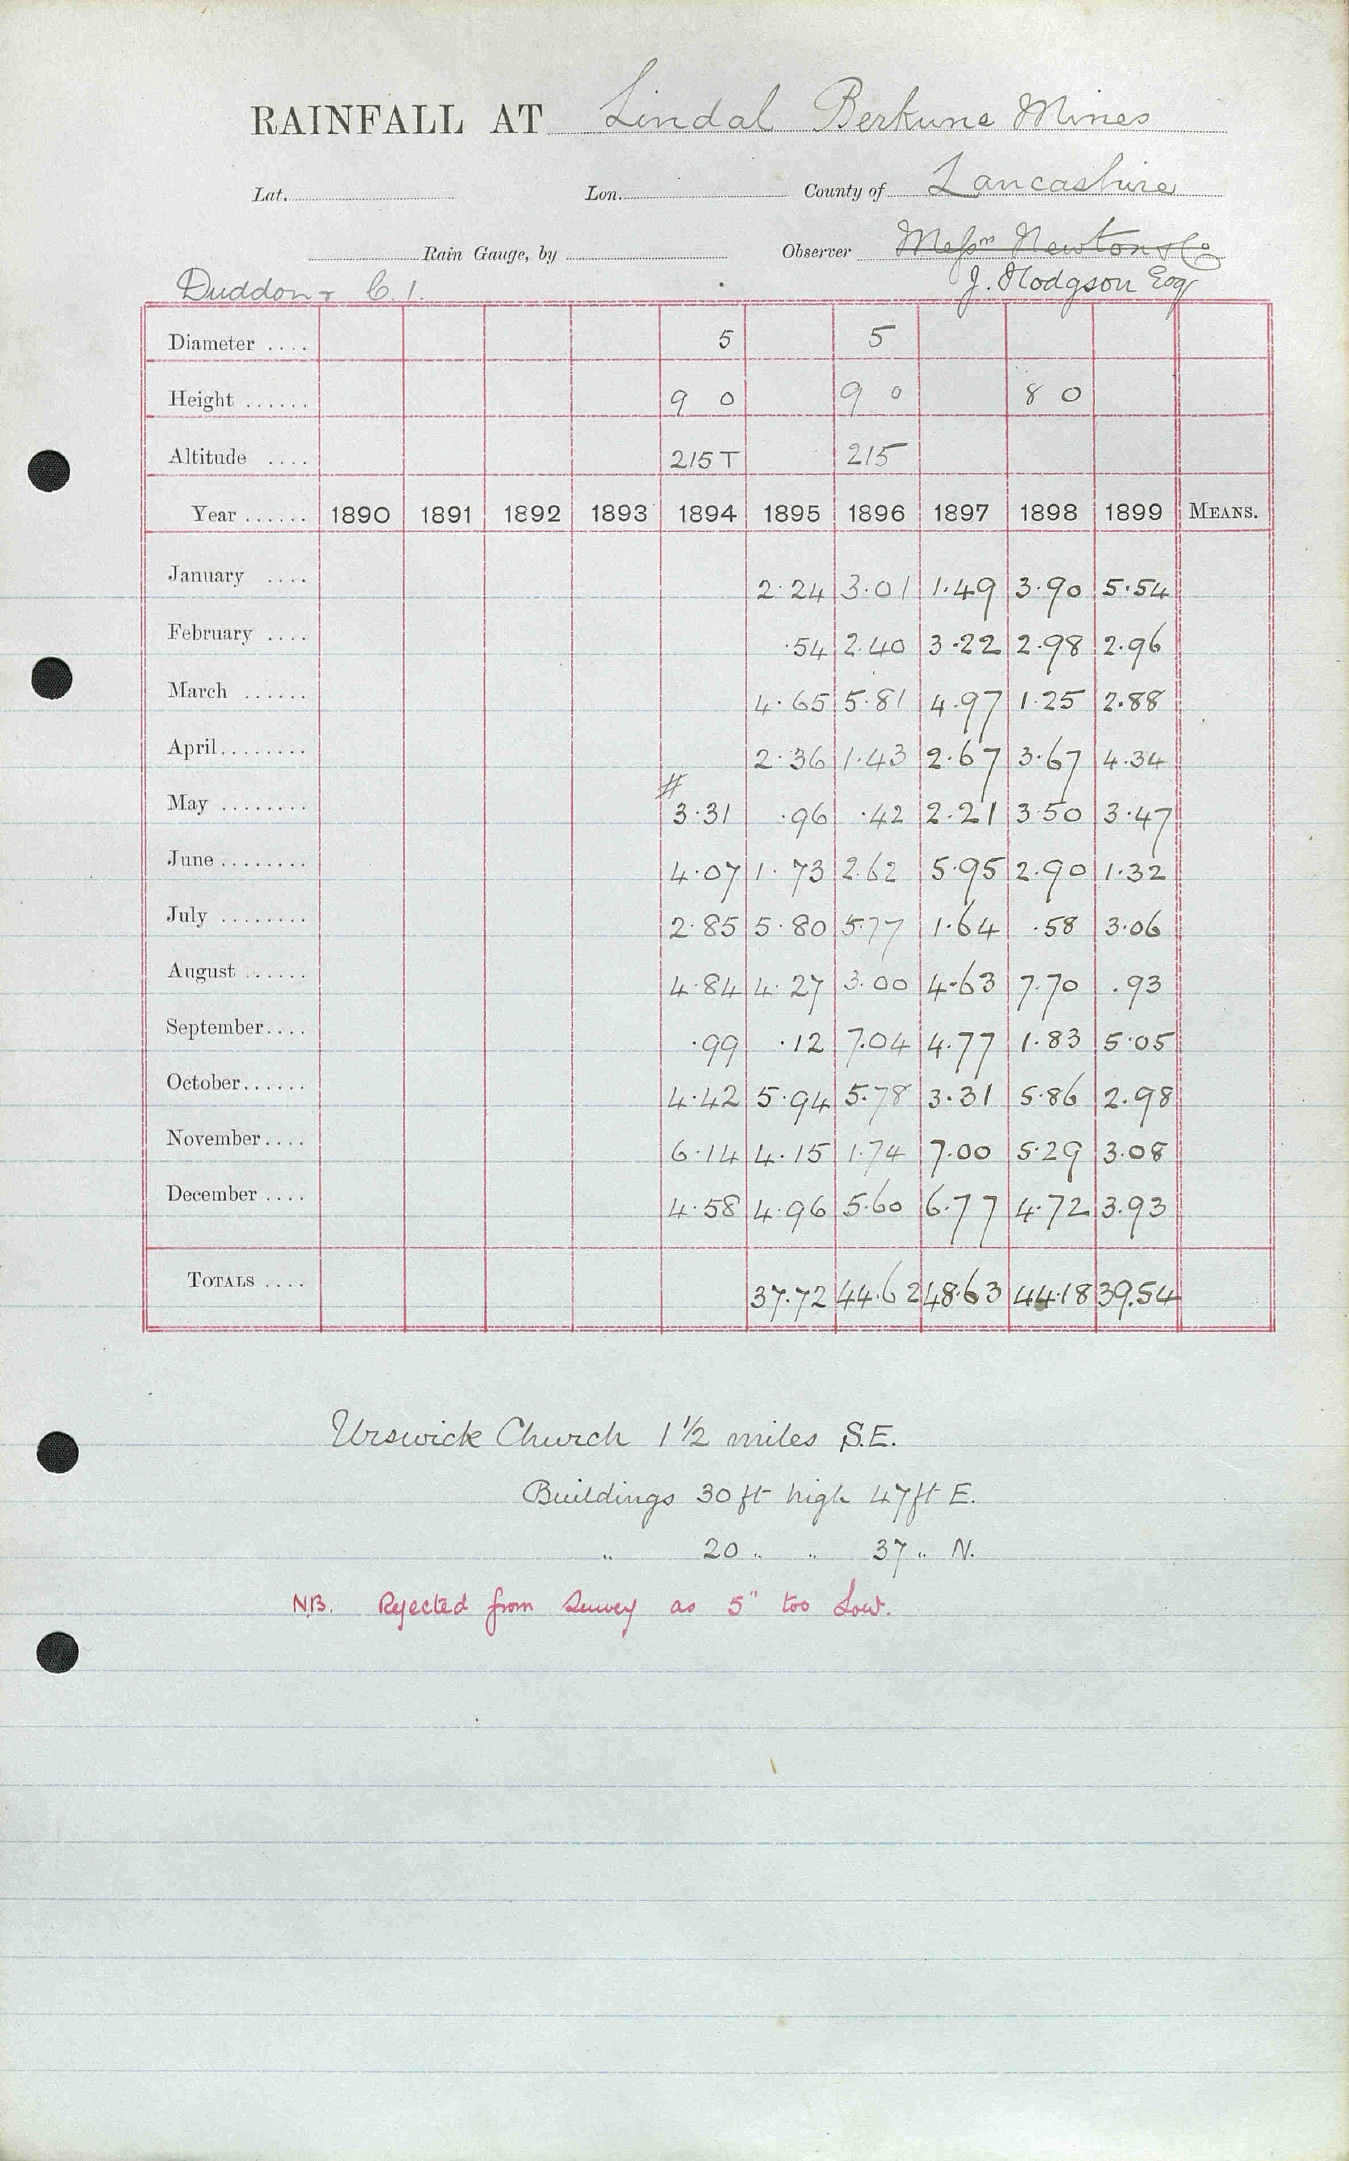 RAINFALL AT Lindal Berkune Mines
Lat. Lon. County of Lancashire
Rain Gauge, by Observer Messrs Newton & Co
Duddon & C. 1. J. Hodgson Esq
Diameter .... 5 5
Height ...... 9 0 9 0 8 0
Altitude .... 215 T 215
Year ...... 1890 1891 1892 1893 1894 1895 1896 1897 1898 1899 MEANS.
January .... 2.24 3.01 1.49 3.90 5.54
February .... .54 2.40 3.22 2.98 2.96
March ...... 4.65 5.81 4.97 1.25 2.88
April........ 2.36 1.43 2.67 3.67 4.34
May ........ # 3.31 .96 .42 2.21 3.50 3.47
June ........ 4.07 1.73 2.62 5.95 2.90 1.32
July ........ 2.85 5.80 5.77 1.64 .58 3.06
August ...... 4.84 4.27 3.00 4.63 7.70 .93
September.... .99 .12 7.04 4.77 1.83 5.05
October...... 4.42 5.94 5.78 3.31 5.86 2.98
November.... 6.14 4.15 1.74 7.00 5.29 3.08
December .... 4.58 4.96 5.60 6.77 4.72 3.93
TOTALS .... 37.72 44.62 48.63 44.18 39.54
Urswick Church 1 1/2 miles S.E.
Buildings 30 ft high 47 ft E.
" 20 " " 37 " N.
NB. Rejected from Survey as 5" too Low.